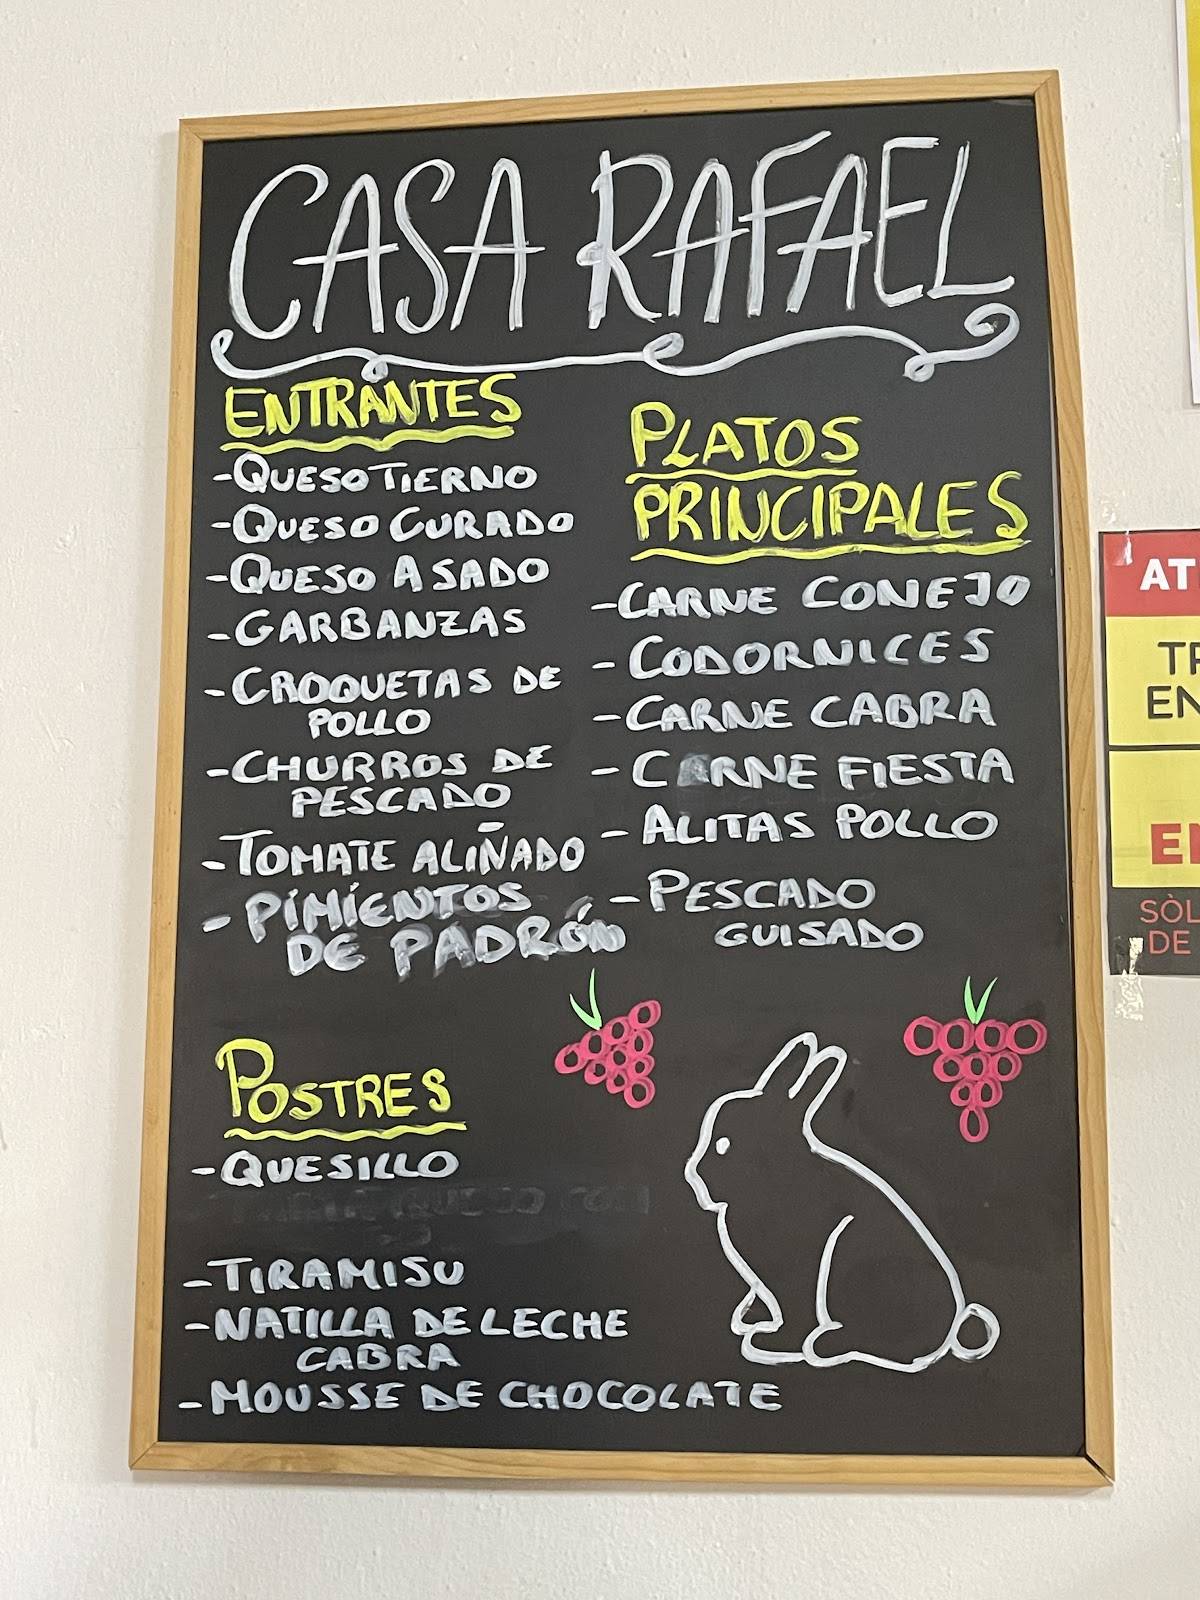 CASA RAFAEL
ENTRANTES
-QUESO TIERNO
-QUESO CURADO
-QUESO ASADO
-GARBANZAS
-CROQUETAS DE
POLLO
-CHURROS DE
PESCADO
-TOMATE ALIÑADO
-PIMIENTOS
DE PADRÓN
PLATOS
PRINCIPALES
-CARNE CONEJO
-CODORNICES
-CARNE CABRA
-CARNE FIESTA
-ALITAS POLLO
-PESCADO
GUISADO
POSTRES
-QUESILLO
-TIRAMISU
-NATILLA DE LECHE
CABRA
-MOUSSE DE CHOCOLATE
AT
TR
EN
SÒL
DE